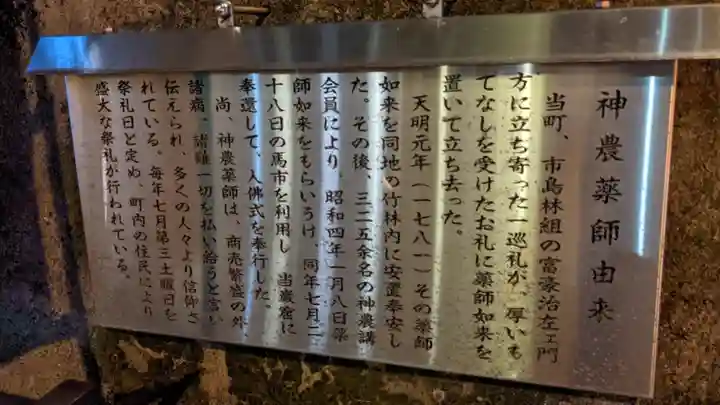 神農薬師由来
当町、市島林組の富豪治左ェ門
方に立ち寄った一巡礼が、厚いも
てなしを受けたお礼に薬師如来を
置いて立ち去った。
天明元年(一七八一)その薬師
如来を同地の竹林内に安置奉安し
た。その後、三二五余名の神農講
会員により、昭和四年一月八日薬
師如来をもらいうけ、同年七月二
十八日の馬市を利用し、当巌窟に
奉還して、入佛式を奉行した。
尚、神農薬師は、商売繁盛の外、
諸病、諸難一切を払い給うと言い
伝えられ、多くの人々より信仰さ
れている。毎年七月第三土曜日を
祭礼日と定め、町内の住民により
盛大な祭礼が行われている。